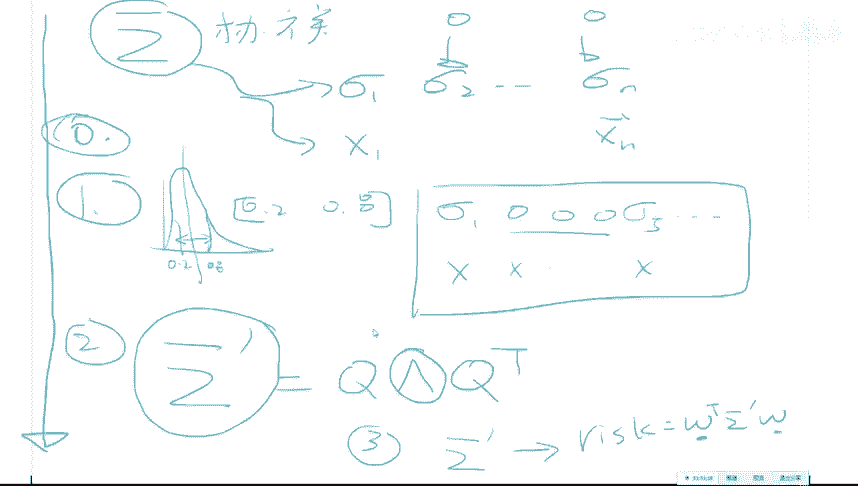 Σ 协方差 0 0
σ₁ σ₂ -- σₙ
0. x₁ x⃗ₙ
1. [0.2 0.8] σ₁ 0 0 0 σ₅ ...
0.2 0.8 x x x
② Σ' = Q Λ Qᵀ
③ Σ' → risk = wᵀΣ'w